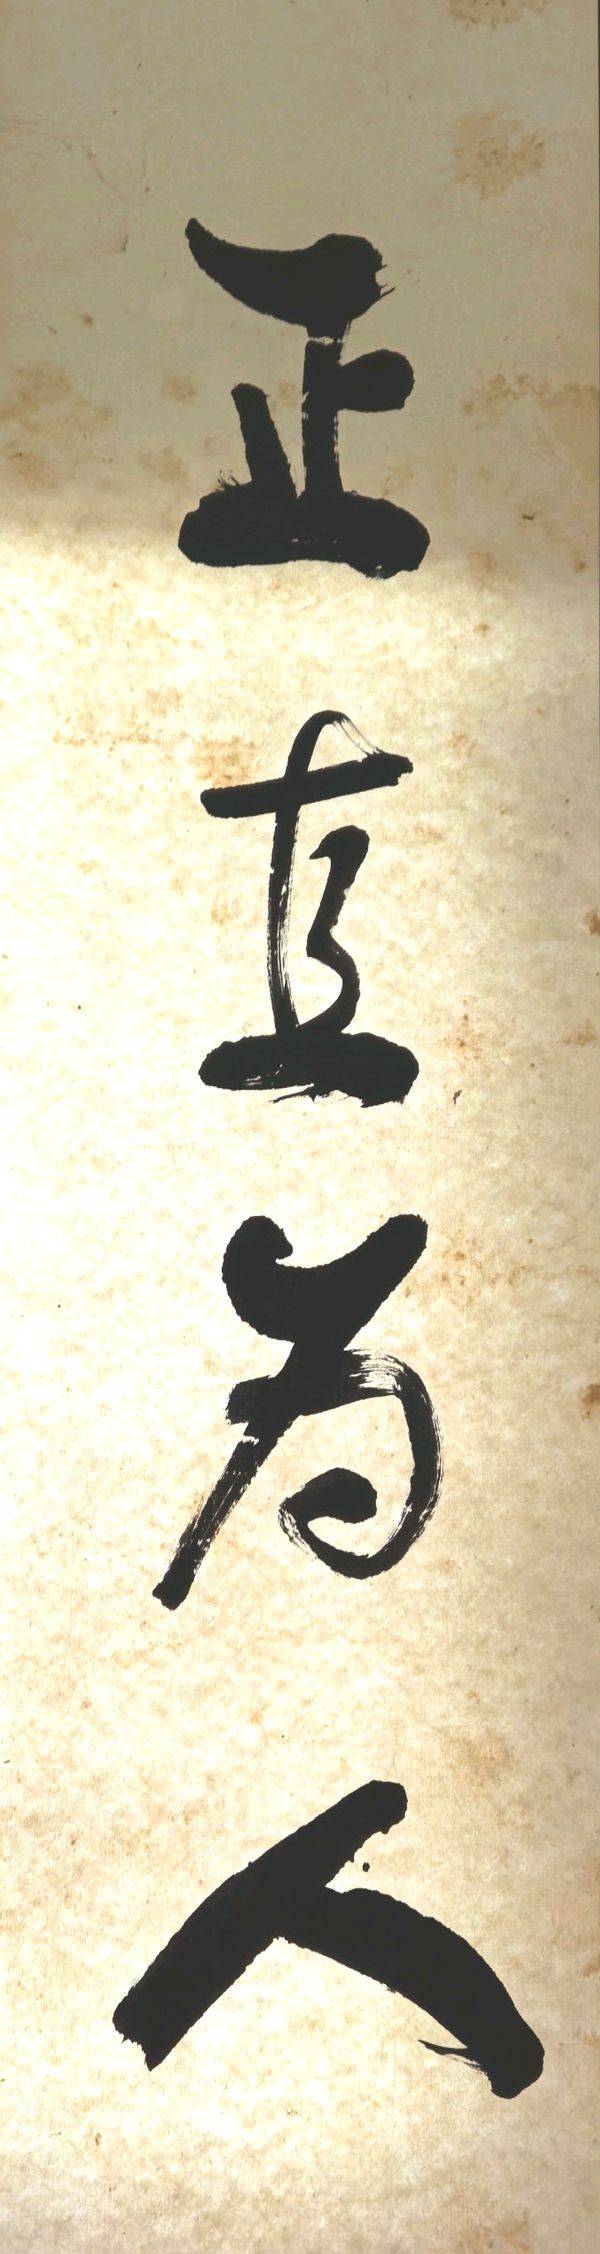 正直為人